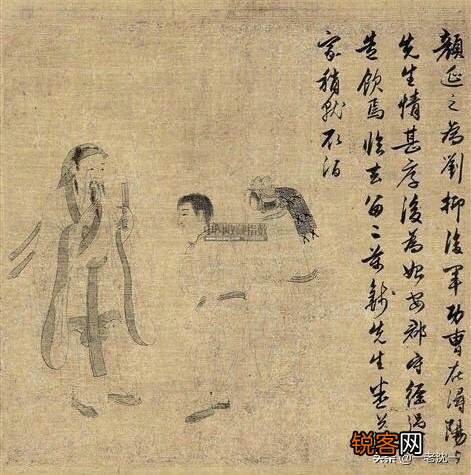 顏延之為劉抑後軍功曹在潯陽與
先生情甚厚後為始安郡守經過
造飲焉臨去留二萬錢先生悉送
家稍就取酒
锐客网
头条 @一老沈一